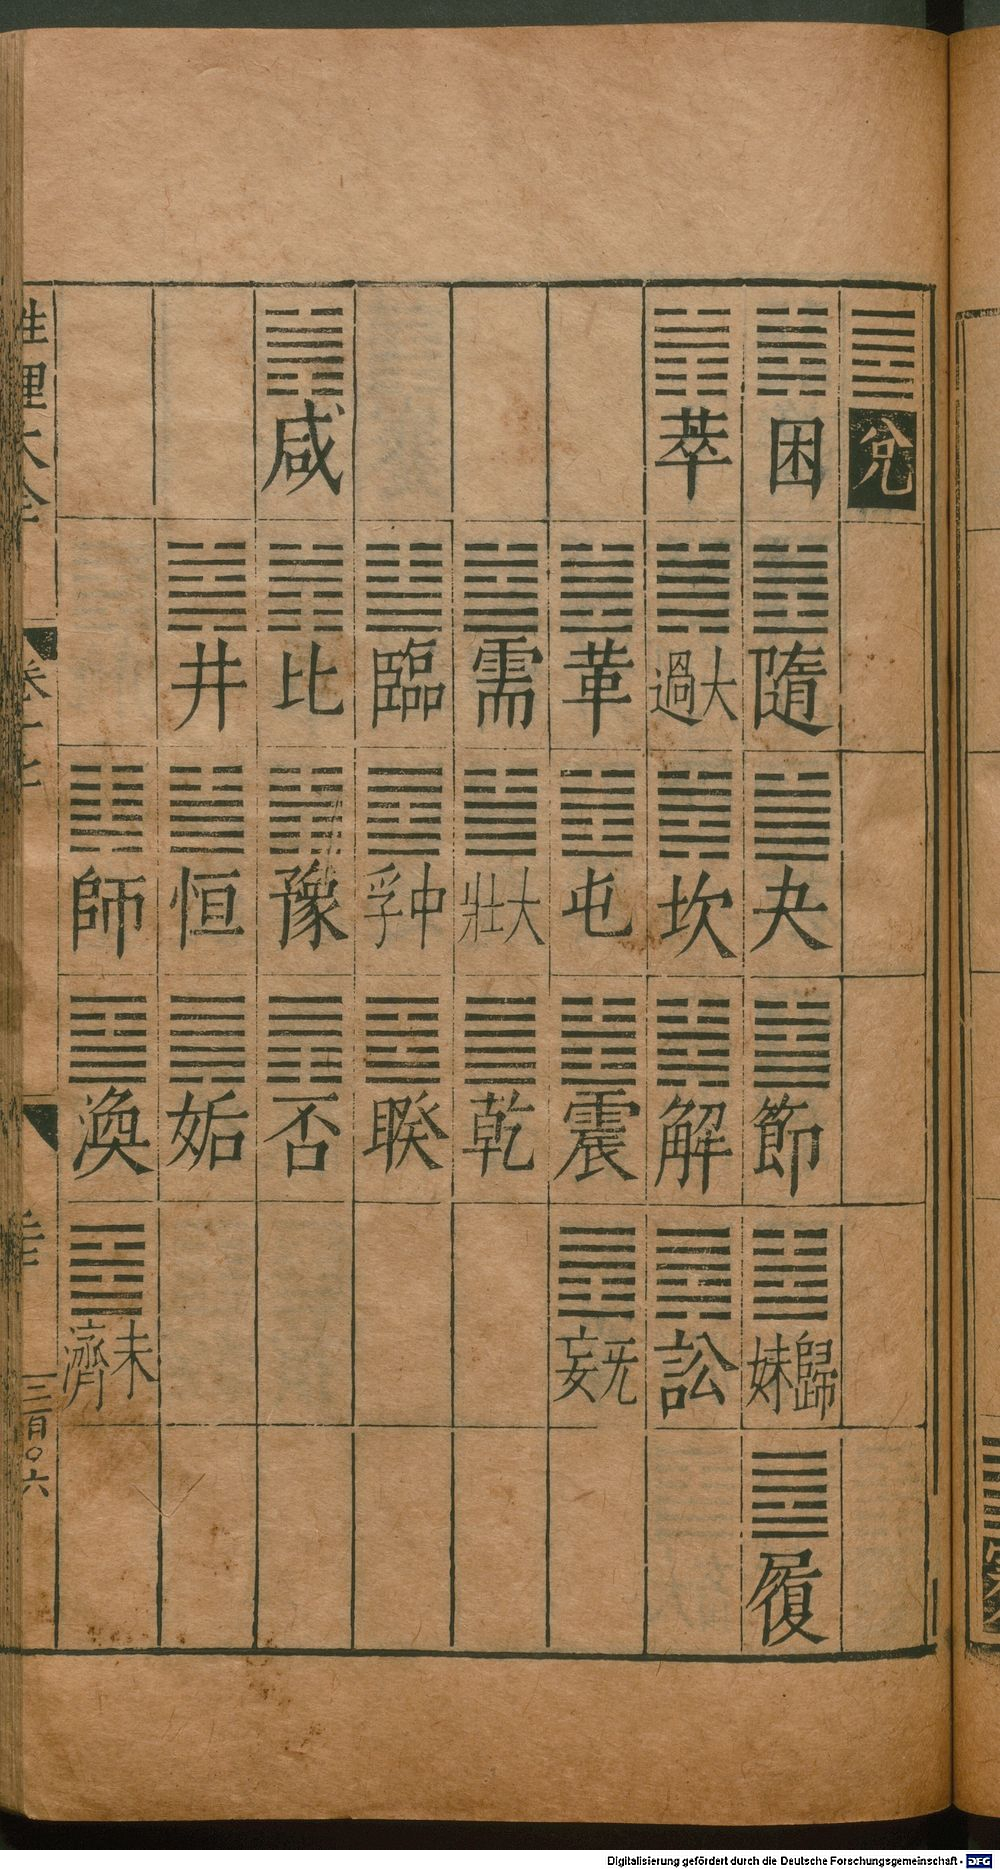 兌
困
隨
夬
節
歸妹
履
萃
大過
坎
解
訟
革
屯
震
无妄
需
大壯
乾
臨
中孚
睽
咸
比
豫
否
井
恒
姤
師
渙
未濟
性理大全
卷十七
三百〇六
Digitalisierung gefördert durch die Deutsche Forschungsgemeinschaft - DFG